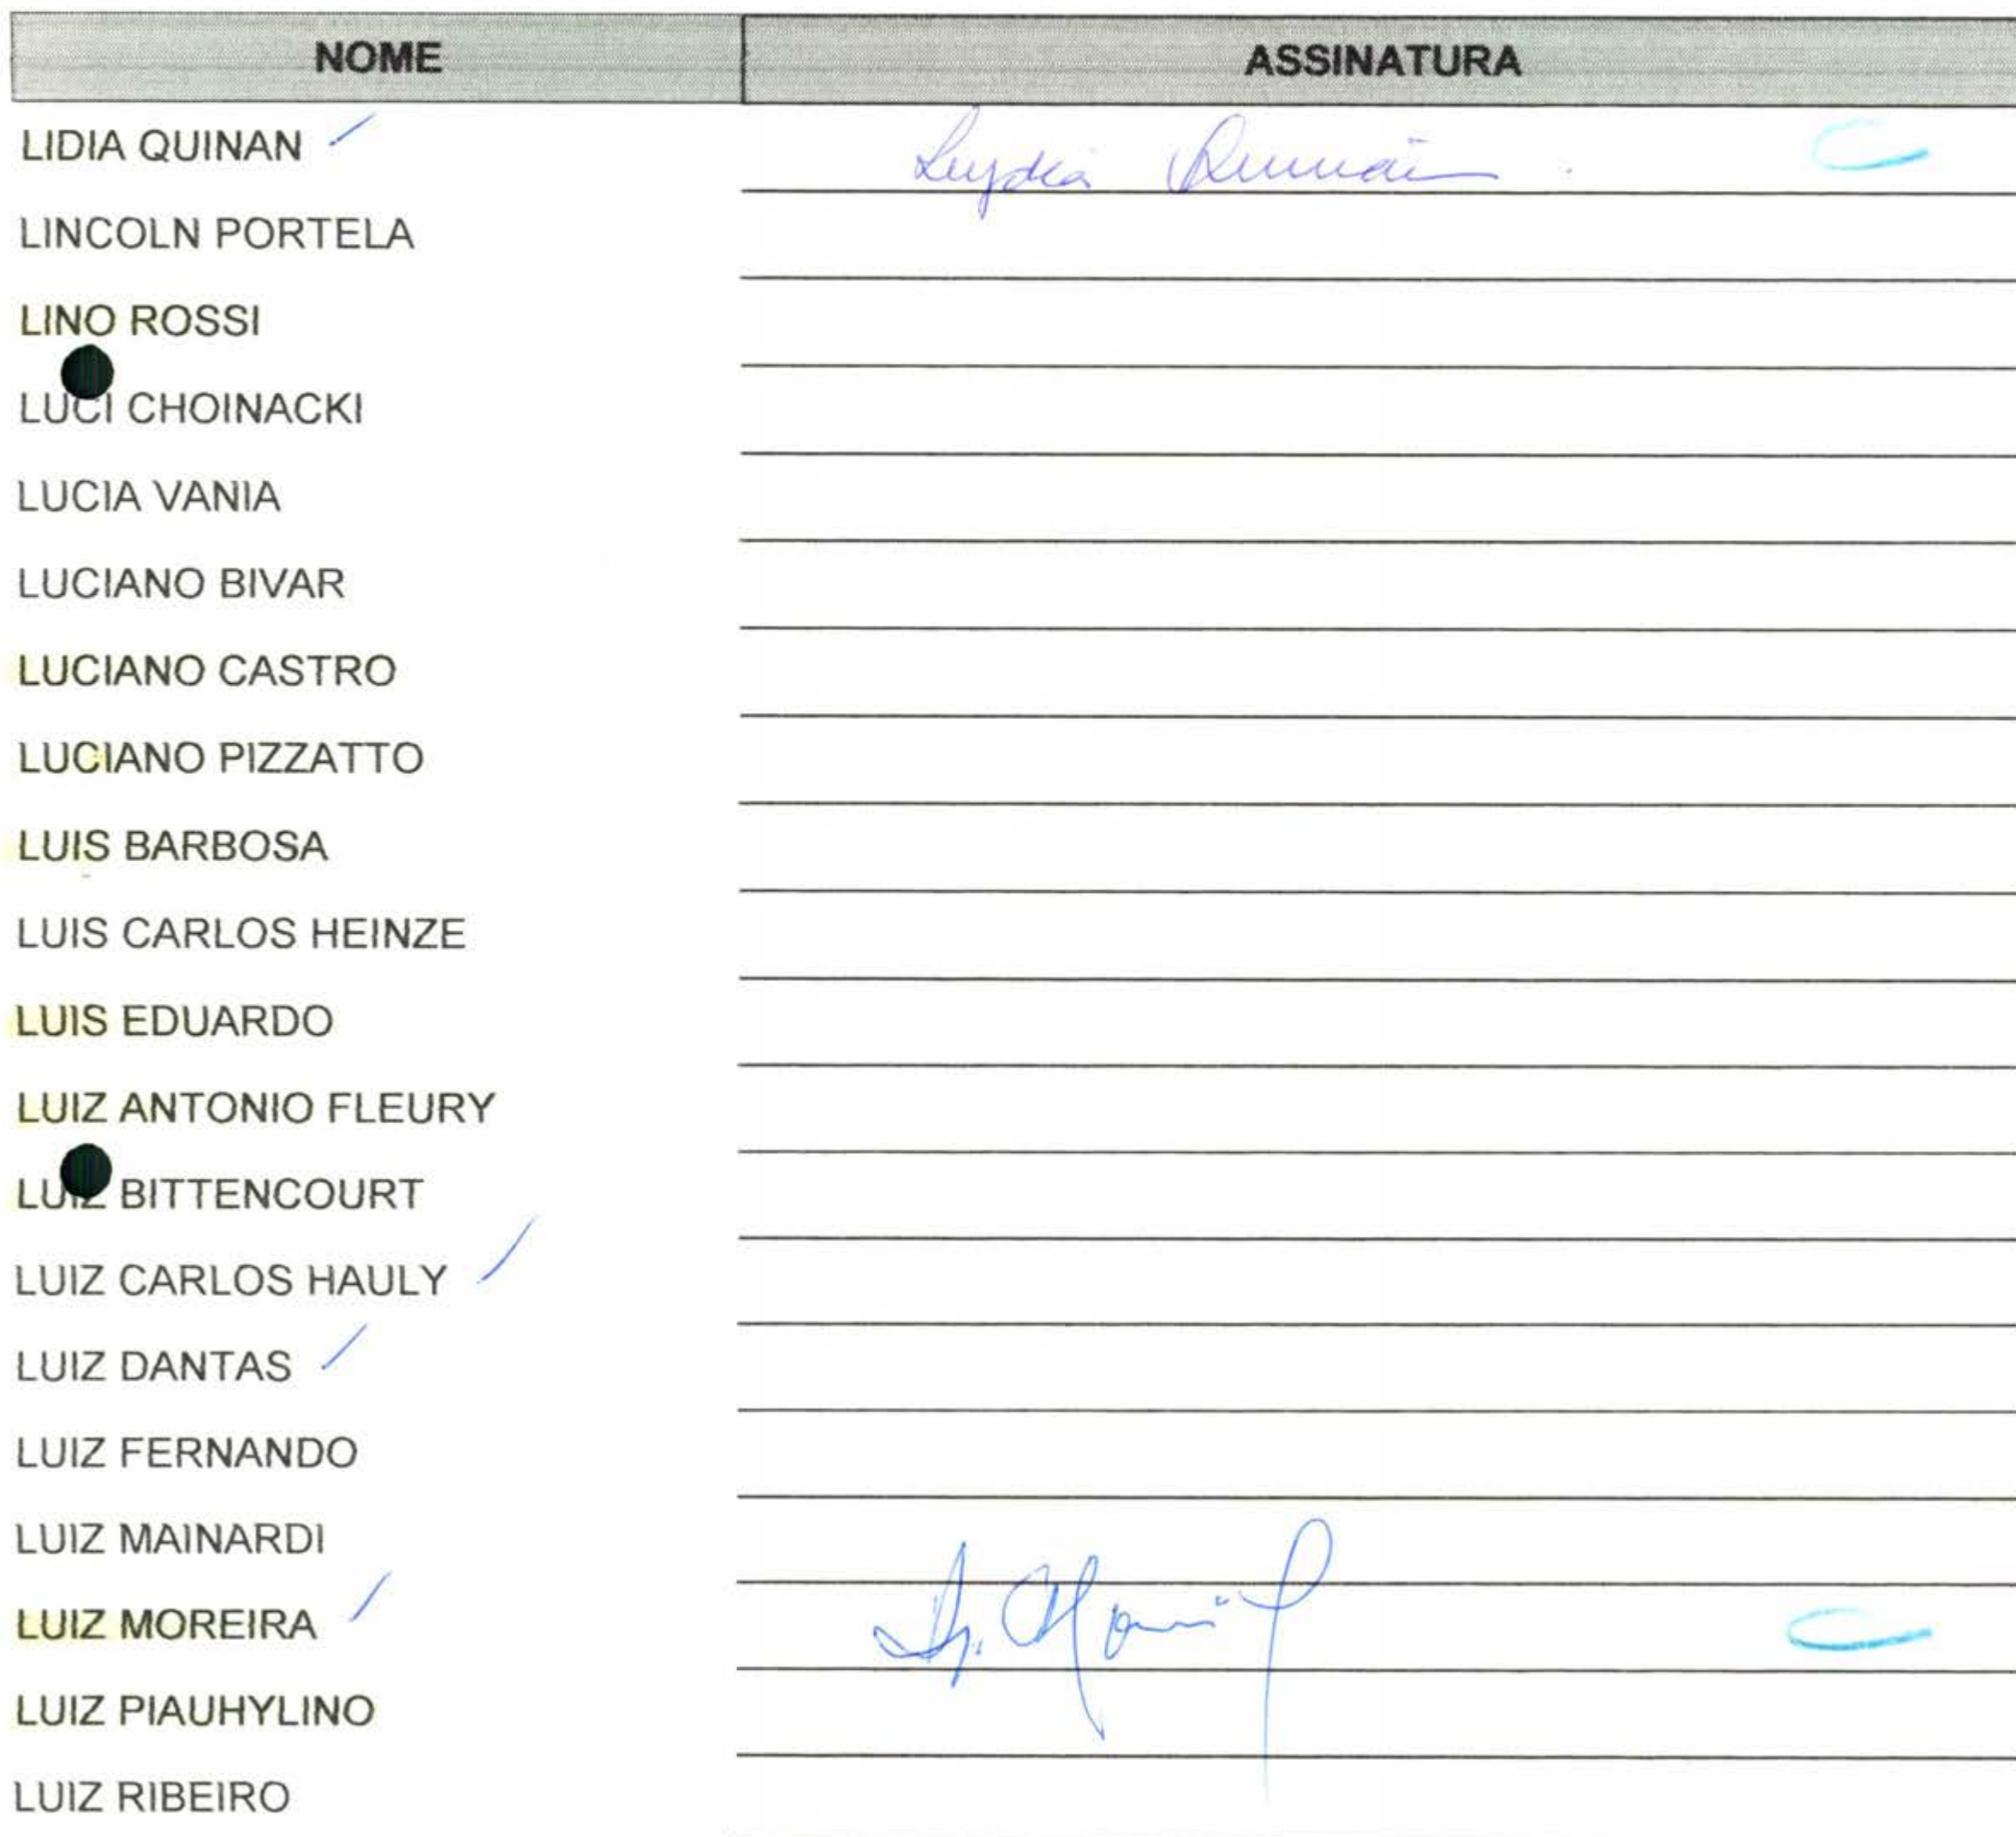 NOME ASSINATURA
LIDIA QUINAN Lydia Quinan
LINCOLN PORTELA
LINO ROSSI
LUCI CHOINACKI
LUCIA VANIA
LUCIANO BIVAR
LUCIANO CASTRO
LUCIANO PIZZATTO
LUIS BARBOSA
LUIS CARLOS HEINZE
LUIS EDUARDO
LUIZ ANTONIO FLEURY
LUIZ BITTENCOURT
LUIZ CARLOS HAULY
LUIZ DANTAS
LUIZ FERNANDO
LUIZ MAINARDI
LUIZ MOREIRA
LUIZ PIAUHYLINO
LUIZ RIBEIRO